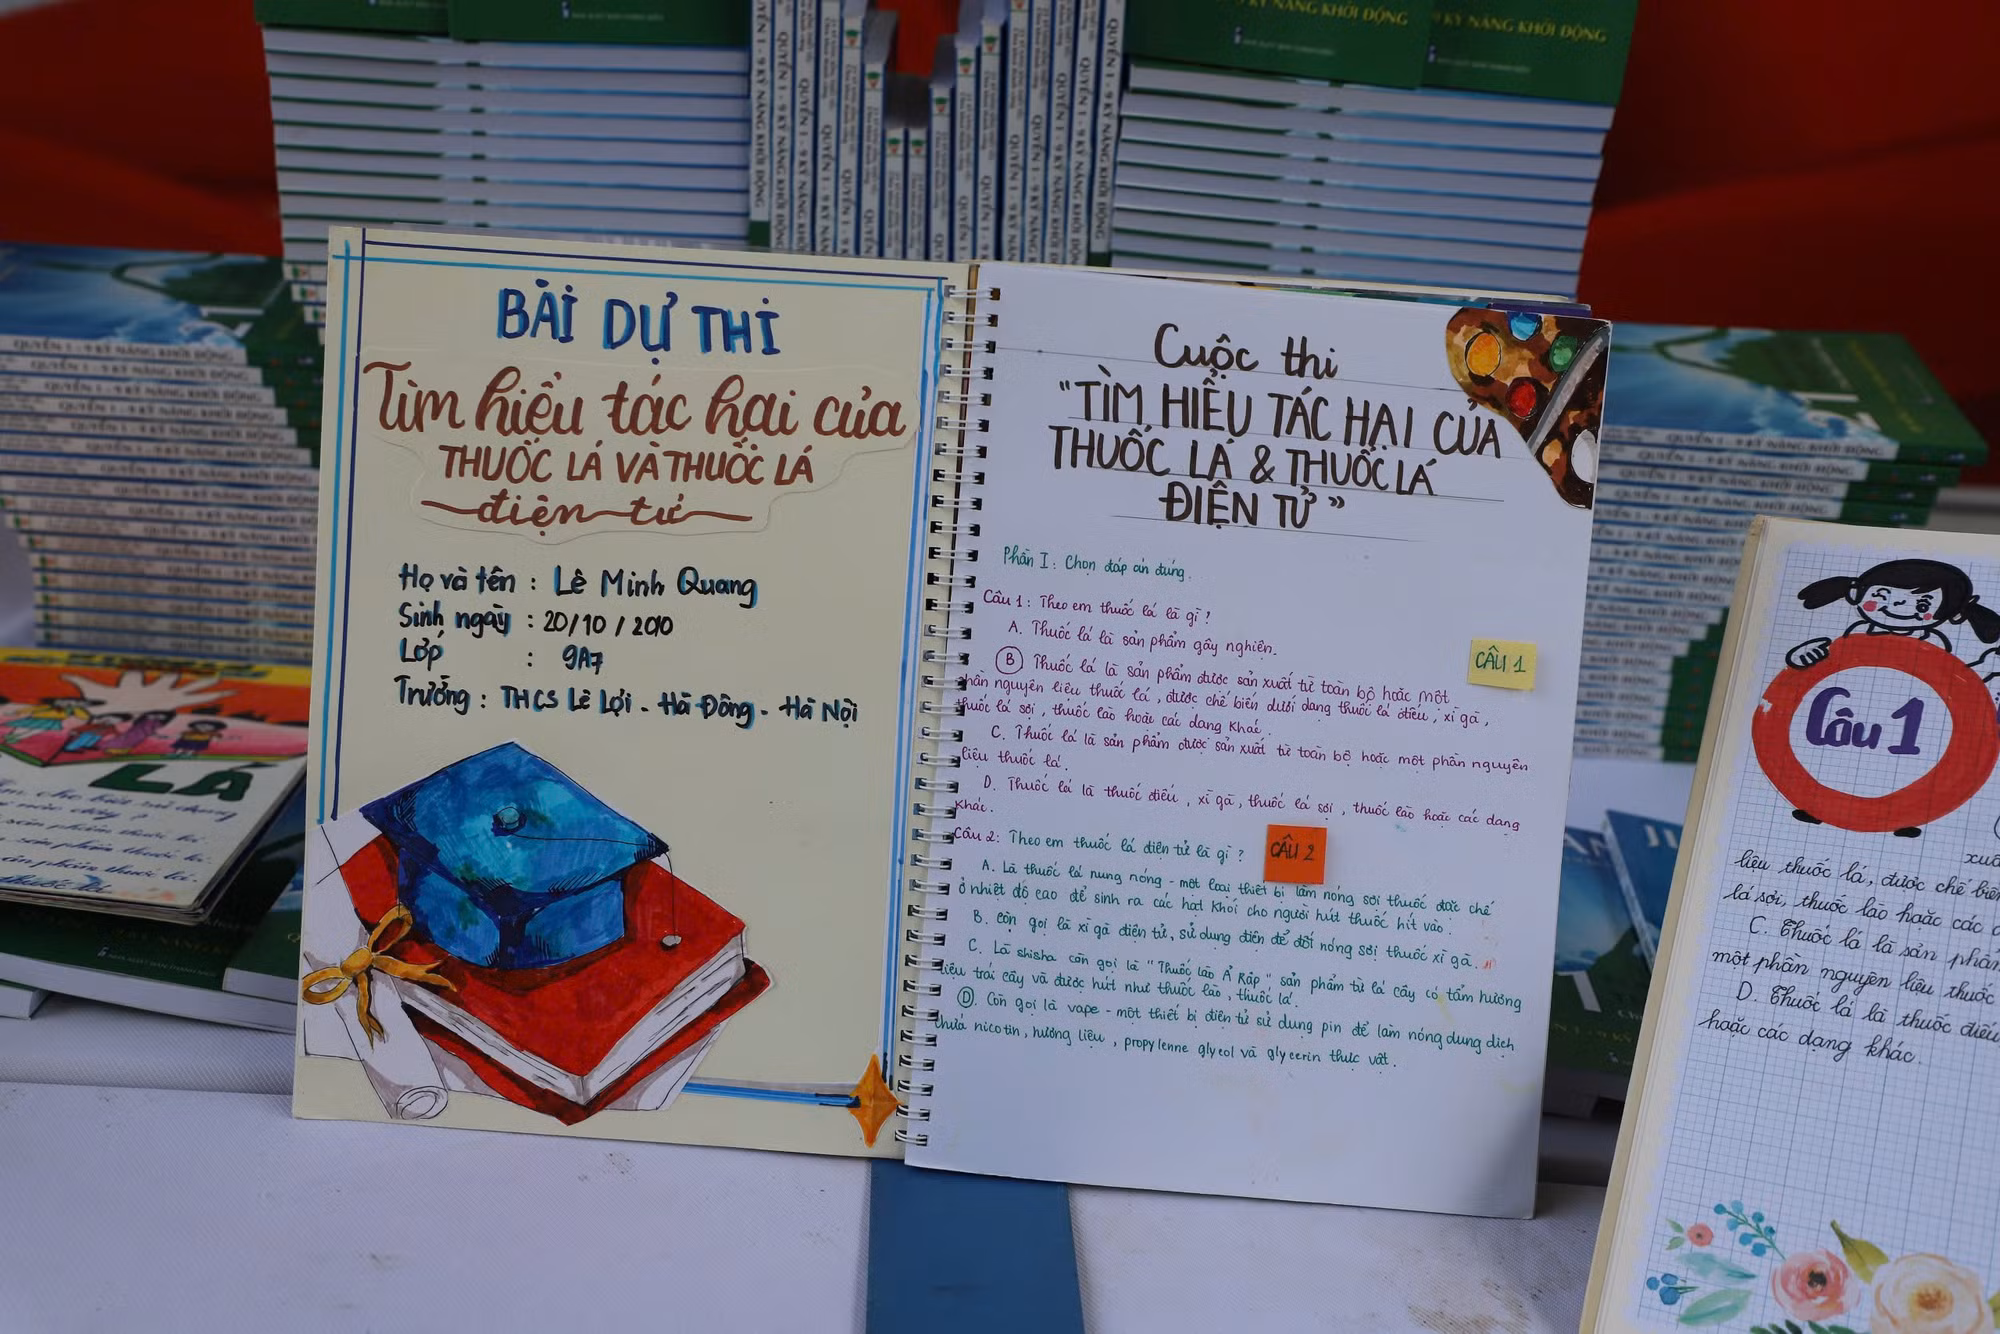 KỸ NĂNG KHỞI ĐỘNG
KỸ NĂNG KHỞI ĐỘNG
QUYỂN 1 - 9 KỸ NĂNG KHỞI ĐỘNG
BÀI DỰ THI
Tìm hiểu tác hại của
THUỐC LÁ VÀ THUỐC LÁ
điện tử
Họ và tên : Lê Minh Quang
Sinh ngày : 20/10/2010
Lớp : 9A7
Trường : THCS Lê Lợi - Hà Đông - Hà Nội
Cuộc thi
"TÌM HIỂU TÁC HẠI CỦA
THUỐC LÁ & THUỐC LÁ
ĐIỆN TỬ"
Phần I: Chọn đáp án đúng.
Câu 1: Theo em thuốc lá là gì?
A. Thuốc lá là sản phẩm gây nghiện.
B Thuốc lá là sản phẩm được sản xuất từ toàn bộ hoặc một
phần nguyên liệu thuốc lá, được chế biến dưới dạng thuốc lá điếu, xì gà,
thuốc lá sợi, thuốc lào hoặc các dạng khác.
C. Thuốc lá là sản phẩm được sản xuất từ toàn bộ hoặc một phần nguyên
liệu thuốc lá.
D. Thuốc lá là thuốc điếu, xì gà, thuốc lá sợi, thuốc lào hoặc các dạng
khác.
CÂU 1
Câu 2: Theo em thuốc lá điện tử là gì?
CÂU 2
A. Là thuốc lá nung nóng - một loại thiết bị làm nóng sợi thuốc được chế
ở nhiệt độ cao để sinh ra các hạt khói cho người hút thuốc hít vào.
B. Còn gọi là xì gà điện tử, sử dụng điện để đốt nóng sợi thuốc xì gà.
C. Là shisha còn gọi là "Thuốc lào Ả Rập", sản phẩm từ lá cây có tẩm hương
liệu trái cây và được hút như thuốc lào, thuốc lá.
D. Còn gọi là vape - một thiết bị điện tử sử dụng pin để làm nóng dung dịch
chứa nicotin, hương liệu, propylenne glycol và glycerin thực vật.
LÁ
Câu 1
liệu thuốc lá, được chế biến
lá sợi, thuốc lào hoặc các d
C. Thuốc lá là sản phẩm
một phần nguyên liệu thuốc
D. Thuốc lá là thuốc điếu
hoặc các dạng khác.